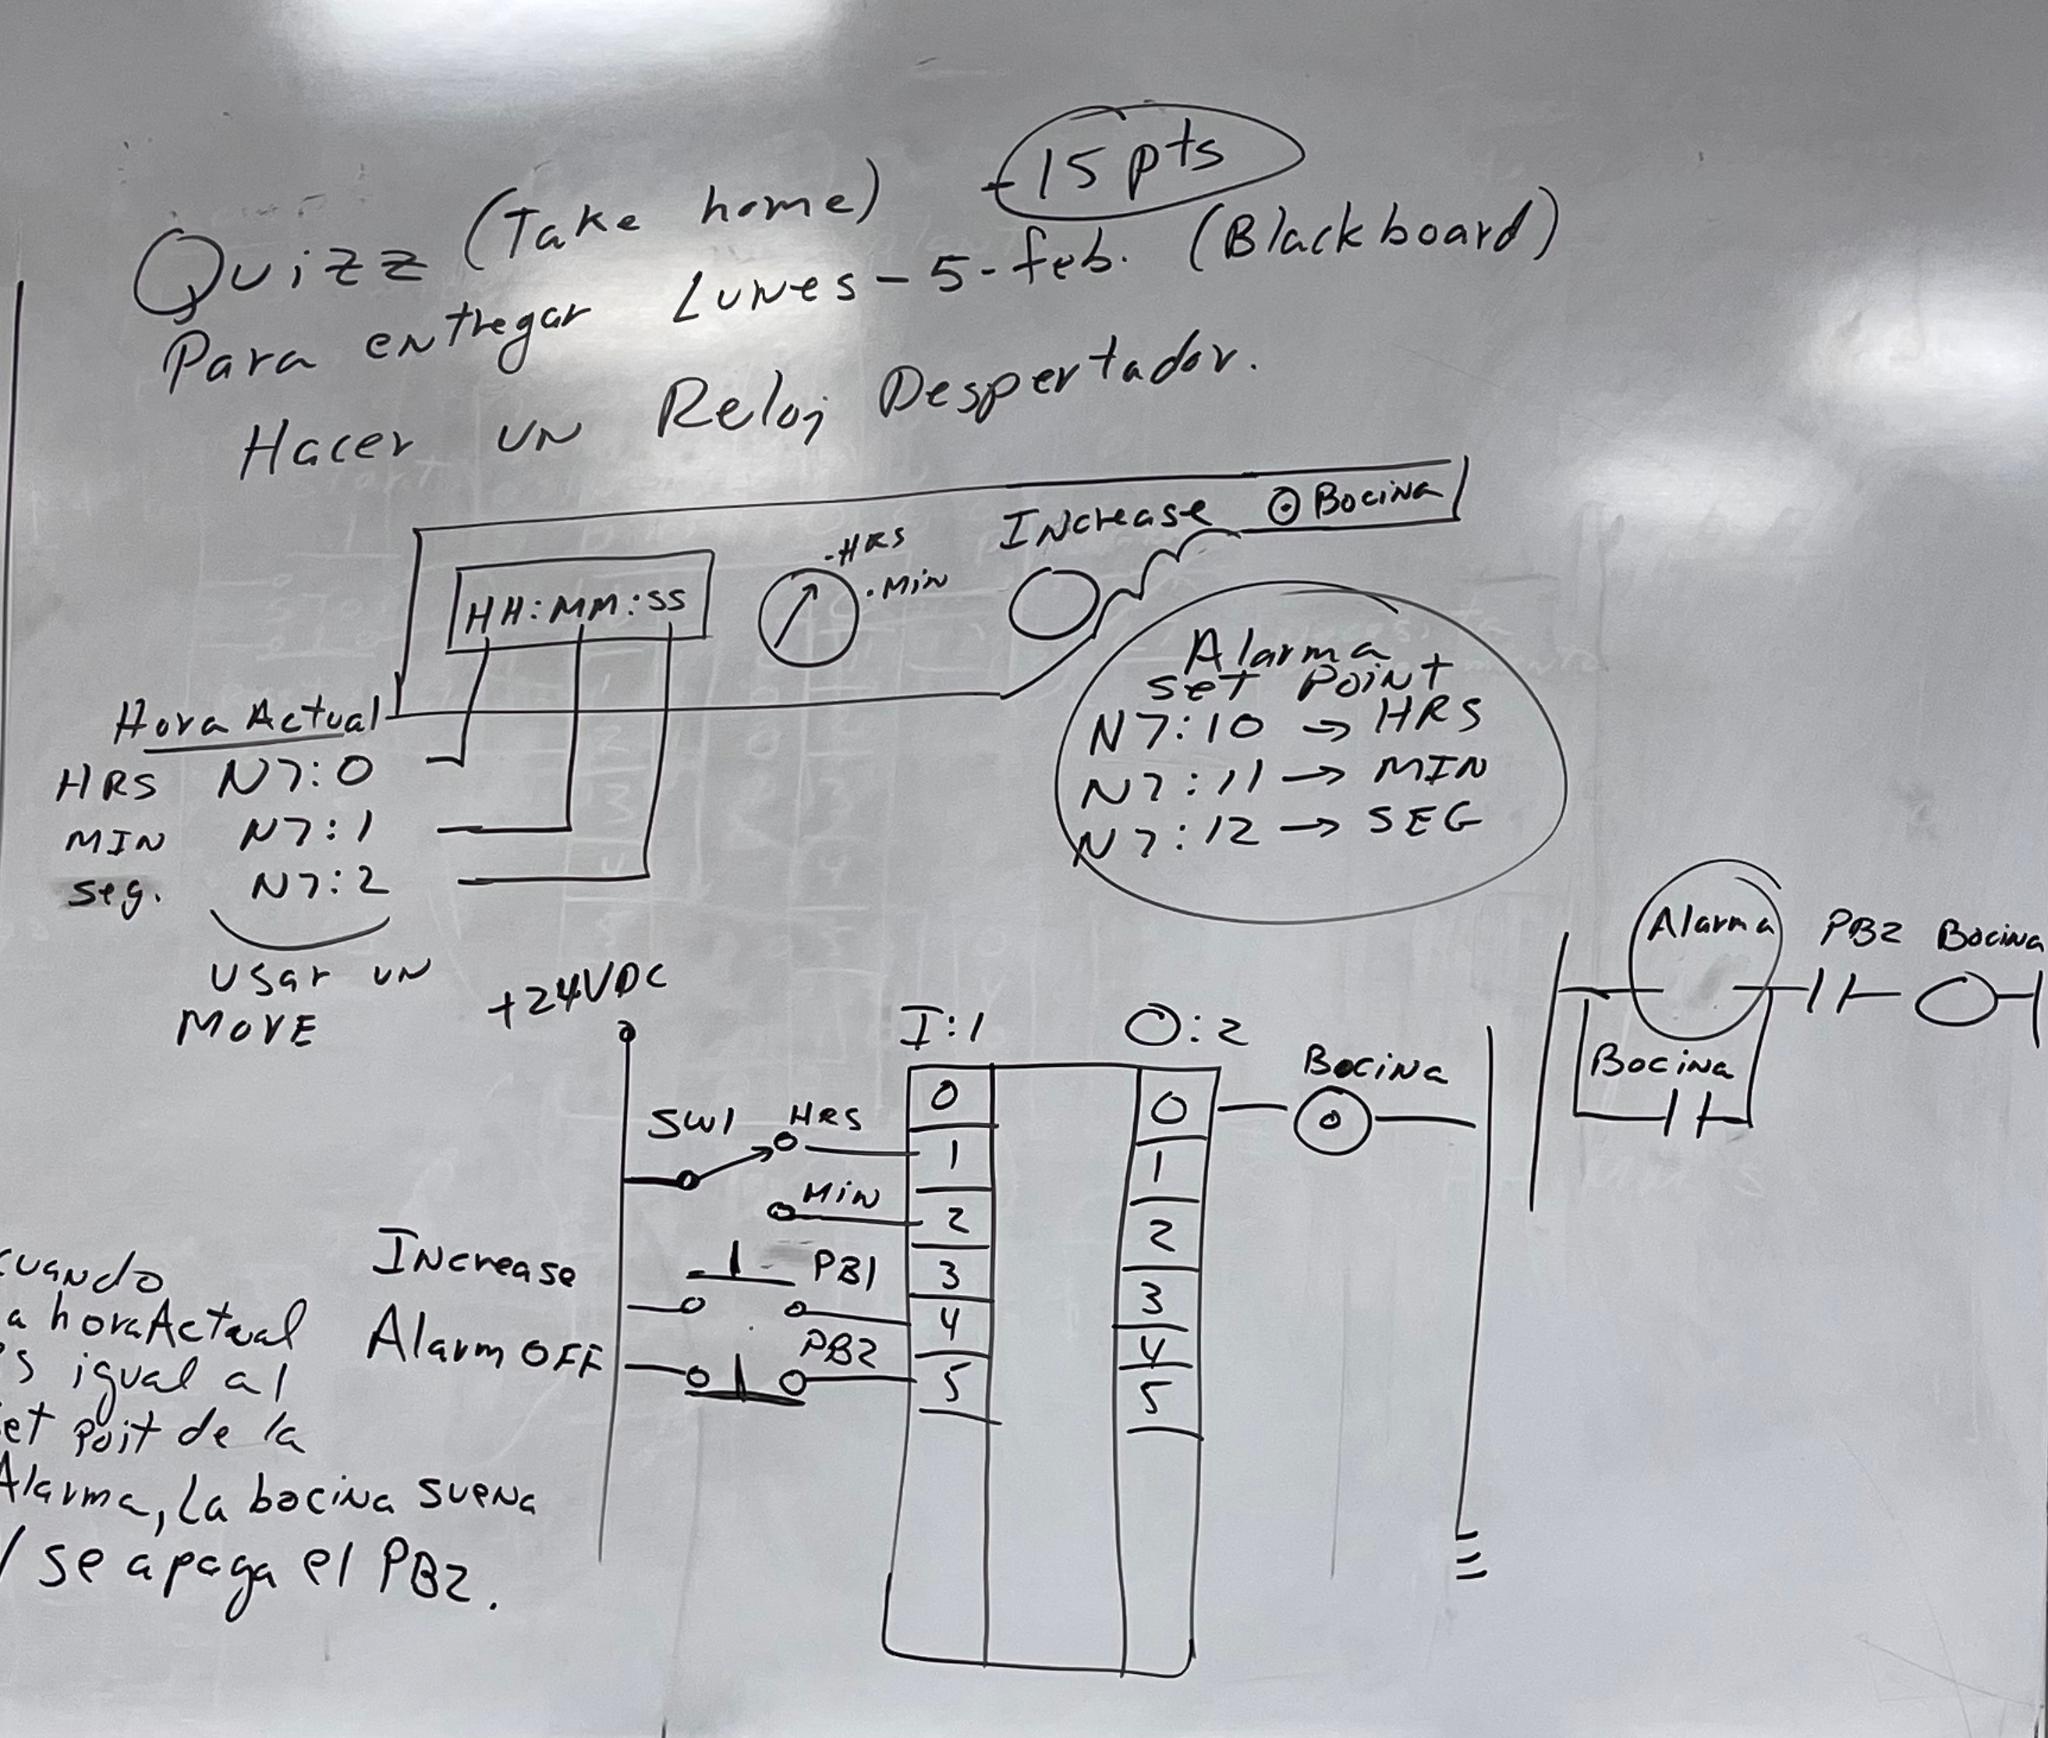 Quizz (Take home) - 15 pts
Para entregar Lunes - 5 - feb. (Blackboard)
Hacer un Reloj Despertador.
HH:MM:SS
HRS
Min
Increase
Bocina
Hora Actual
HRS N7:0
MIN N7:1
seg. N7:2
Usar un
MOVE
Alarma
set point
N7:10 → HRS
N7:11 → MIN
N7:12 → SEG
Alarma PB2 Bocina
Bocina
+24VDC
I:1 O:2
SW1 HRS
Min
Increase PB1
Alarm OFF PB2
0
1
2
3
4
5
0
1
2
3
4
5
Bocina
cuando
a hora Actual
s igual al
et Poit de la
Alarma, La bocina suena
y se apaga el PB2.